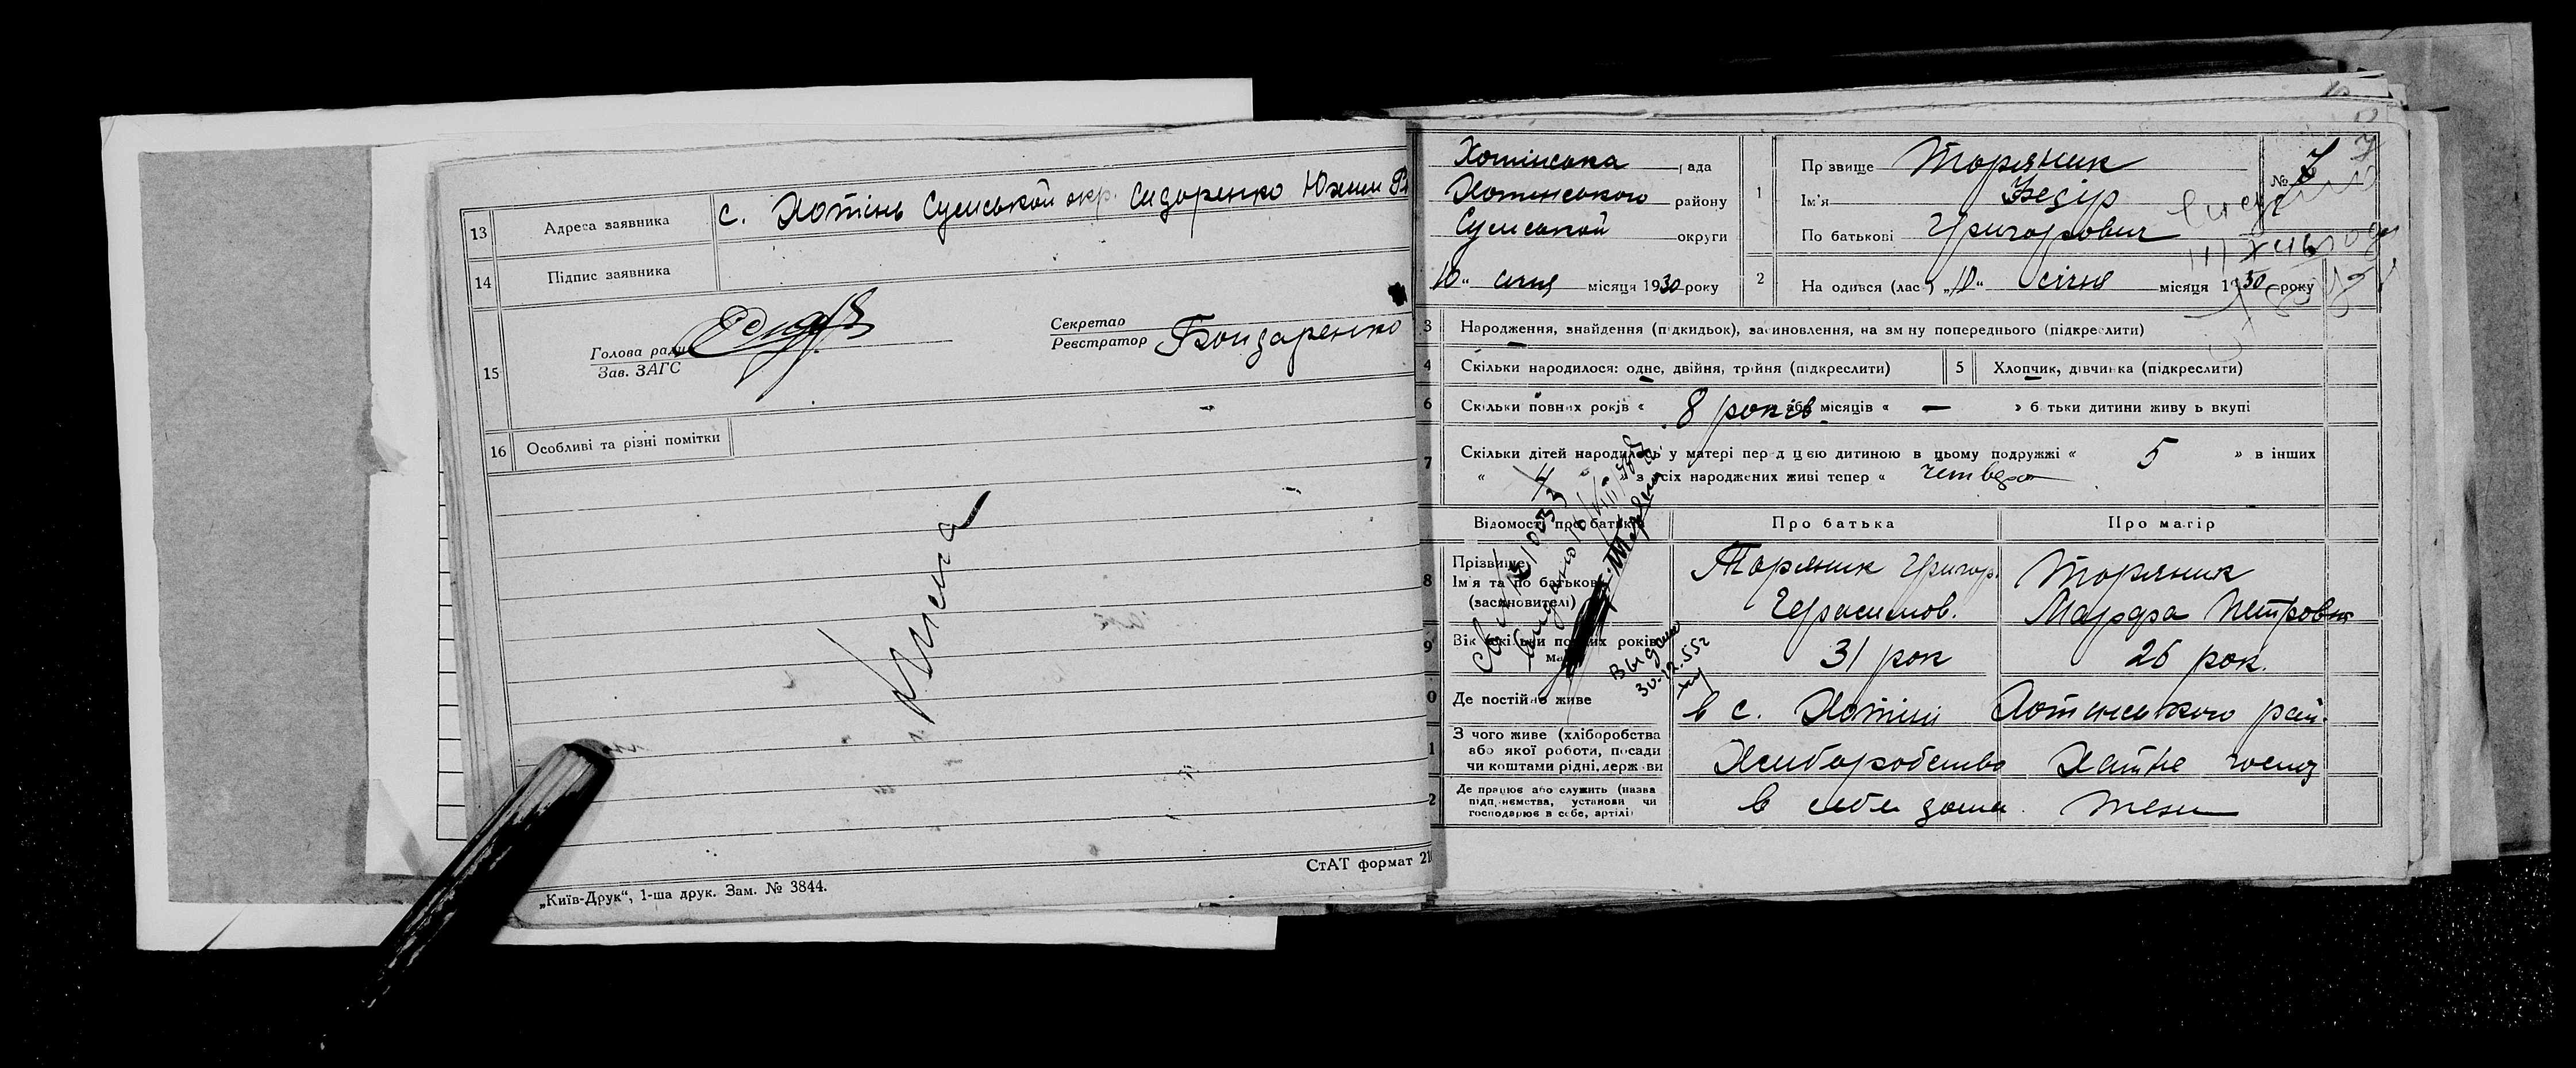 13 Адреса заявника с. Хотінь Сумської окр. Сидоренко Юхим
14 Підпис заявника
15 Голова ради
Зав. ЗАГС
Секретар
Реєстратор Бондаренко
16 Особливі та різні помітки
„Київ-Друк“, 1-ша друк. Зам. № 3844.
СтАТ формат
Хотінська рада
Хотінського району
Сумської округи
10 " січня місяця 1930 року
1 Прізвище Торяник
Ім'я Федір
По батькові Григорович
№ 7
2 На одився (лас ) „10" січня місяця 1930 року
3 Народження, знайдення (підкидьок), засиновлення, на зміну попереднього (підкреслити)
4 Скільки народилося: одне, двійня, трійня (підкреслити)
5 Хлопчик, дівчинка (підкреслити)
6 Скільки повних років « 8 років або місяців « — » батьки дитини живуть вкупі
7 Скільки дітей народилось у матері перед цією дитиною в цьому подружжі « 5 » в інших
« » з усіх народжених живі тепер « четверо
Відомості про батьків
Про батька
Про матір
8 Прізвище
Ім'я та по батькові
(засиновителі)
Торяник Григор.
Герасимов.
Торяник
Марфа Петровна
9 Вік (скільки повних років
31 рок
26 рок.
Де постійно живе
в с. Хотіні Хотінського рай.
З чого живе (хліборобства
або якої роботи, посади
чи коштами рідні, держави
Хліборобство
Хатне господ
Де працює або служить (назва
підприємства, установи чи
господарює в себе, артілі)
в себе дома
тезн
Выдано
30.12.55г